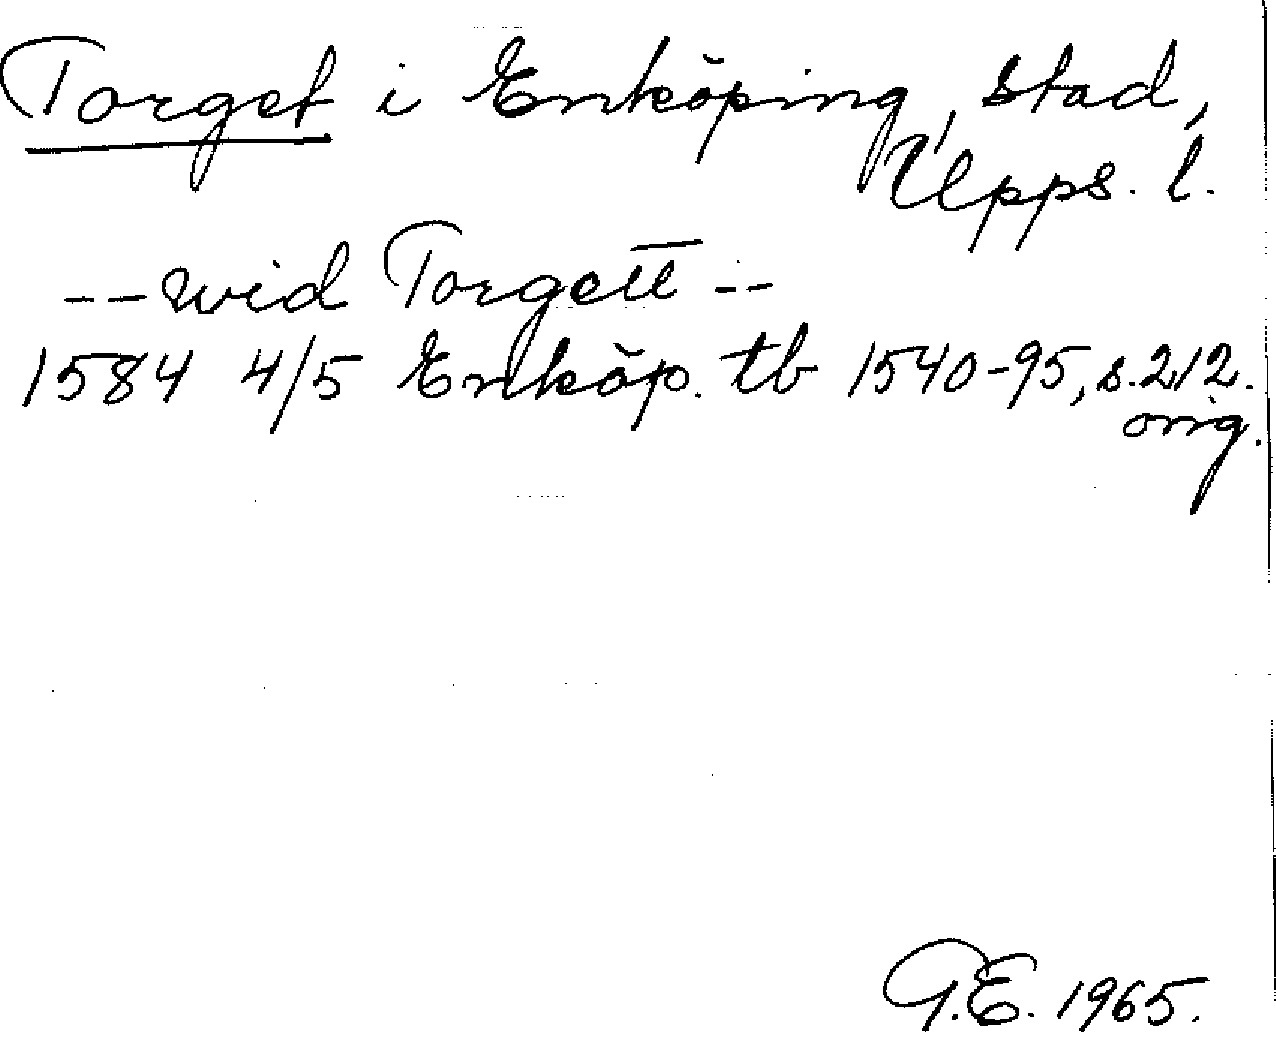 Torget i Enköping, stad,
Upps. l.
-- wid Torgett --
1584 4/5 Enköp. tb 1540-95, s. 212.
orig.
G.E. 1965.